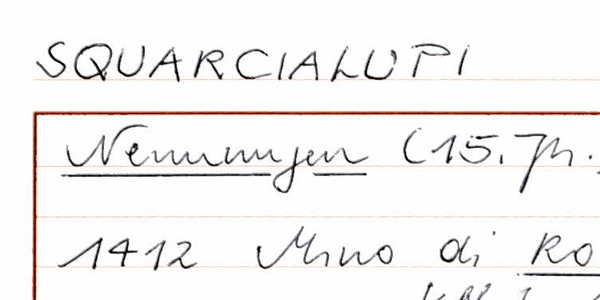 SQUARCIALUPI
Nennungen (15. Jh.
1412 Mino di Ro